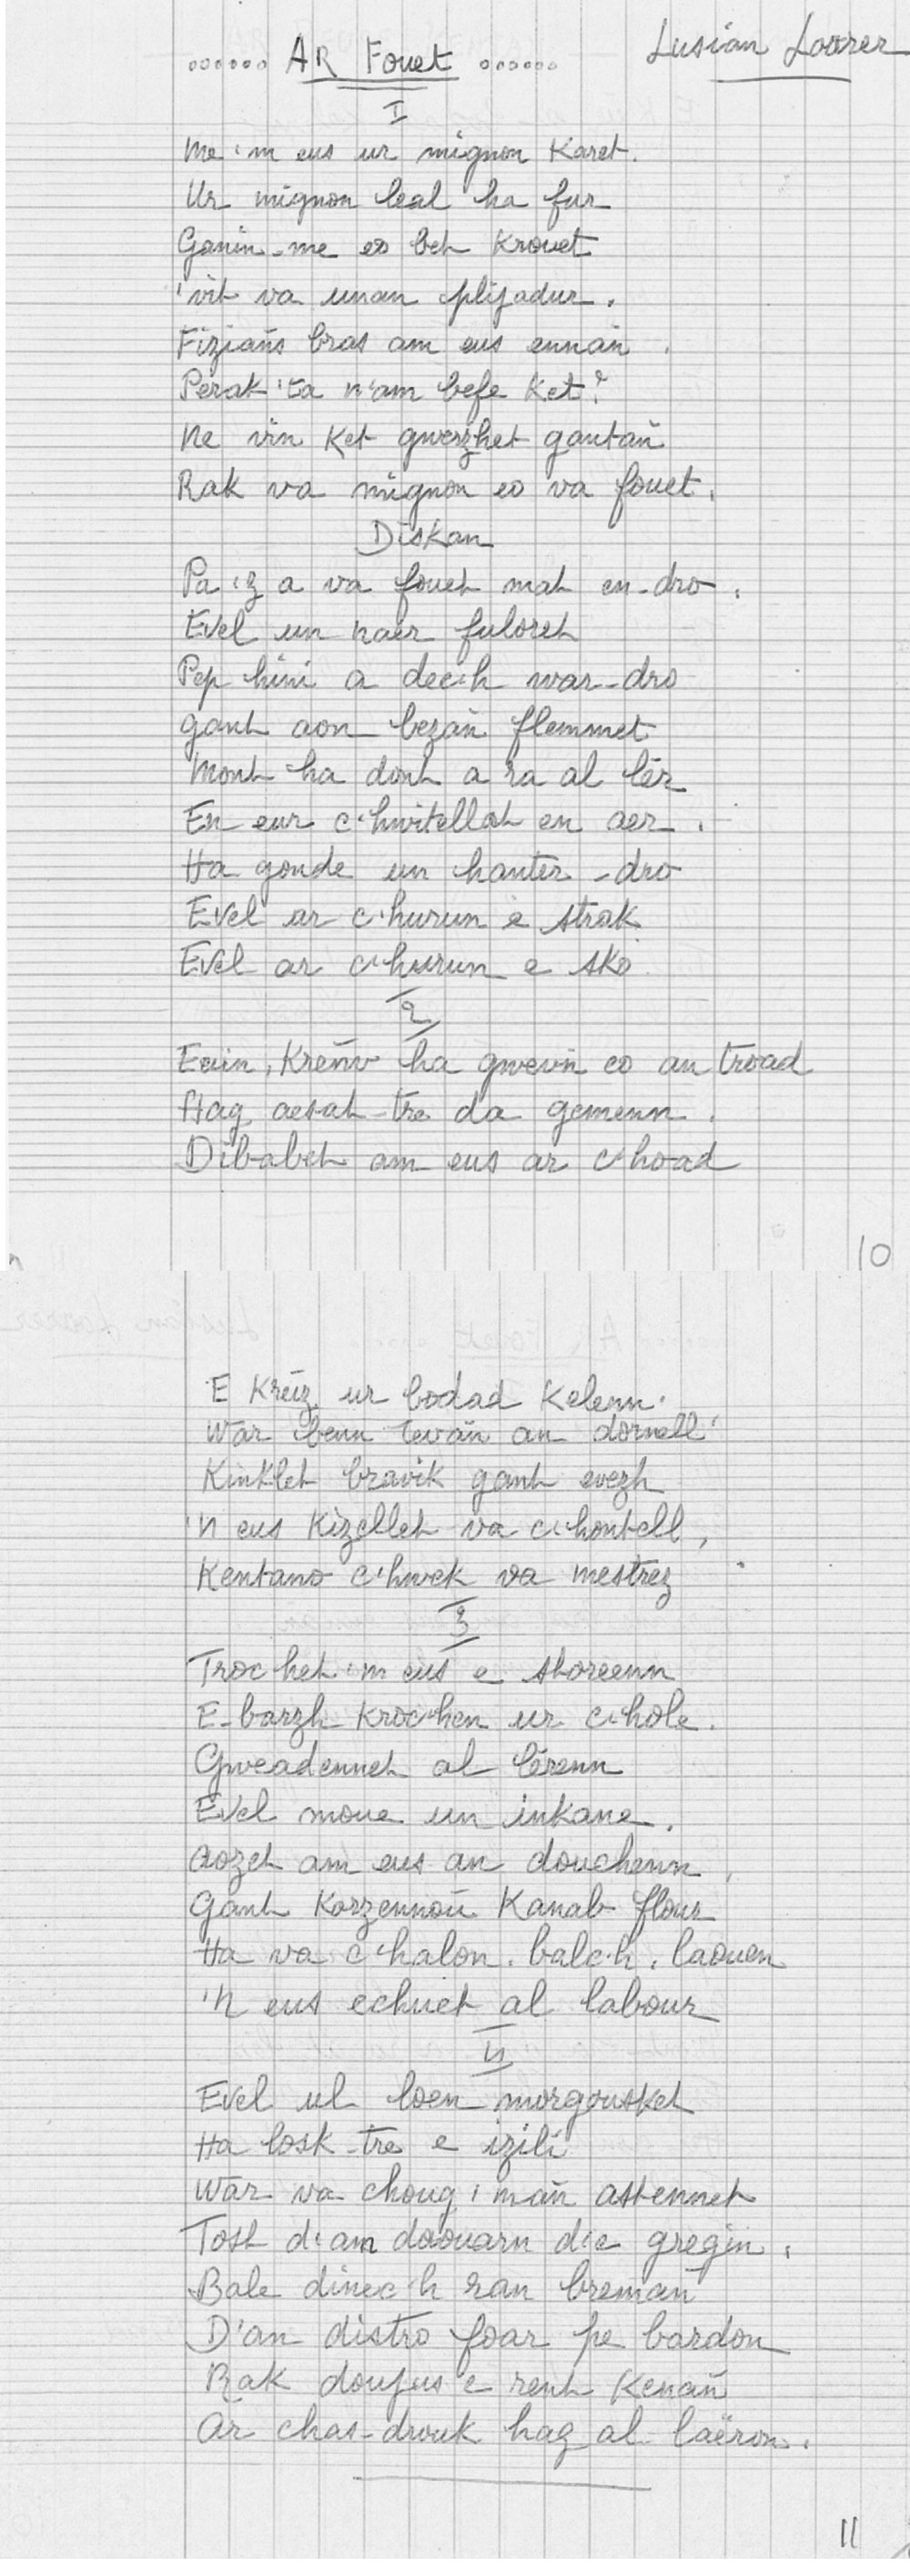 ...... AR Fouet ......
Lusian Loarer
I
Me 'm eus ur mignon Karet.
Ur mignon leal ha fur
Ganin-me eo bet Krouet
'vit va unan plijadur.
Fizians bras am eus ennañ.
Perak 'ta n'am befe Ket?
Ne vin Ket gwerzhet gantañ
Rak va mignon eo va fouet.
Diskan
Pa 'z a va fouet mat en-dro.
Evel un naer fuloret
Pep hini a dec'h war-dro
gant aon bezañ flemmet
Mont ha dont a ra al lêr
En eur c'hwitellat en aer.
Ha goude un hanter-dro
Evel ar c'hurun e strak
Evel ar c'hurun e sko
2
Eeün, Kreñv ha gwevn eo an troad
Hag aesat-tre da gemenn.
Dibabet am eus ar c'hoad
10
E Kreiz ur bodad Kelenn.
War benn tevañ an dornell
Kinklet bravik gant evezh
'N eus Kizellet va c'hontell,
Kentano c'hwek va mestrez
3
Troc'het 'm eus e storeenn
E-barzh Kroc'hen ur c'hole.
Gweadennet al lêrenn
Evel moue un inkane.
Aozet am eus an douchenn,
Gant Korzennoù Kanab flour
Ha va c'halon, balc'h, laouen
'N eus echuet al labour
4
Evel ul loen morgousket
Ha losk-tre e izili
War va choug 'mañ astennet
Tost d'am daouarn d'e gregiñ.
Bale dinec'h ran bremañ
D'an distro foar pe bardon
Rak doujus e rent Kenañ
Ar chas-drouk hag al laëron.
11